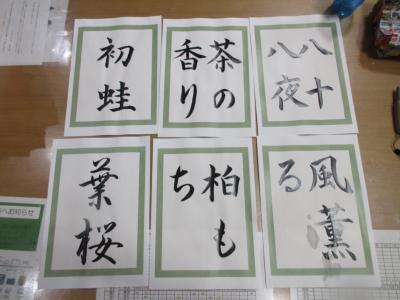 初蛙
茶の
香り
八十
八夜
葉桜
柏も
ち
風薫
る
お知らせ